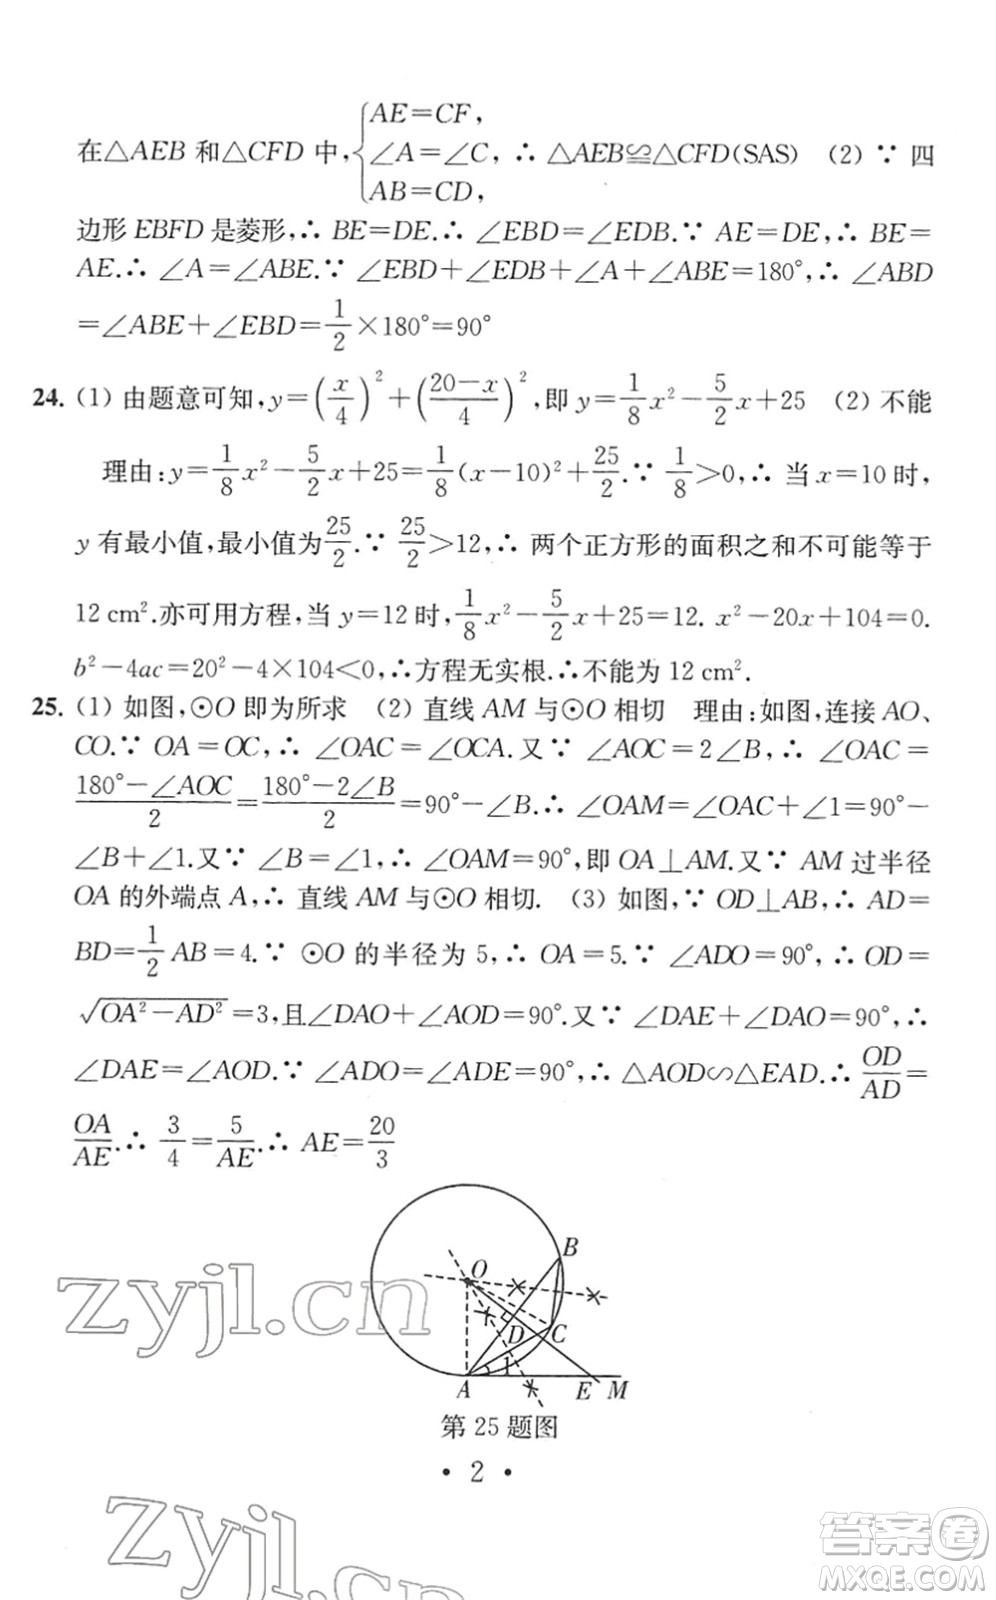 在△AEB 和△CFD 中,{AE=CF, ∠A=∠C, AB=CD, ∴ △AEB≌△CFD(SAS) (2) ∵ 四
边形 EBFD 是菱形,∴ BE=DE.∴ ∠EBD=∠EDB.∵ AE=DE,∴ BE=
AE.∴ ∠A=∠ABE.∵ ∠EBD+∠EDB+∠A+∠ABE=180°,∴ ∠ABD
=∠ABE+∠EBD=1/2×180°=90°
24. (1) 由题意可知,y=(x/4)²+((20-x)/4)²,即 y=1/8x²-5/2x+25 (2) 不能
理由:y=1/8x²-5/2x+25=1/8(x-10)²+25/2.∵ 1/8>0,∴ 当 x=10 时,
y 有最小值,最小值为25/2.∵ 25/2>12,∴ 两个正方形的面积之和不可能等于
12 cm².亦可用方程,当 y=12 时,1/8x²-5/2x+25=12. x²-20x+104=0.
b²-4ac=20²-4×104<0,∴方程无实根.∴不能为 12 cm².
25. (1) 如图,⊙O 即为所求 (2) 直线 AM 与⊙O 相切 理由:如图,连接 AO、
CO.∵ OA=OC,∴ ∠OAC=∠OCA.又∵ ∠AOC=2∠B,∴ ∠OAC=
(180°-∠AOC)/2=(180°-2∠B)/2=90°-∠B.∴ ∠OAM=∠OAC+∠1=90°-
∠B+∠1.又∵ ∠B=∠1,∴ ∠OAM=90°,即 OA⊥AM.又∵ AM 过半径
OA 的外端点 A,∴ 直线 AM 与⊙O 相切. (3) 如图,∵ OD⊥AB,∴ AD=
BD=1/2AB=4.∵ ⊙O 的半径为 5,∴ OA=5.∵ ∠ADO=90°,∴ OD=
√(OA²-AD²)=3,且∠DAO+∠AOD=90°.又∵ ∠DAE+∠DAO=90°,∴
∠DAE=∠AOD.∵ ∠ADO=∠ADE=90°,∴ △AOD∽△EAD.∴ OD/AD=
OA/AE.∴ 3/4=5/AE.∴ AE=20/3
B
O
D C
1
A E M
zyjl.cn
第 25 题图
• 2 •
zyjl.cn
答案卷
MXQE.COM